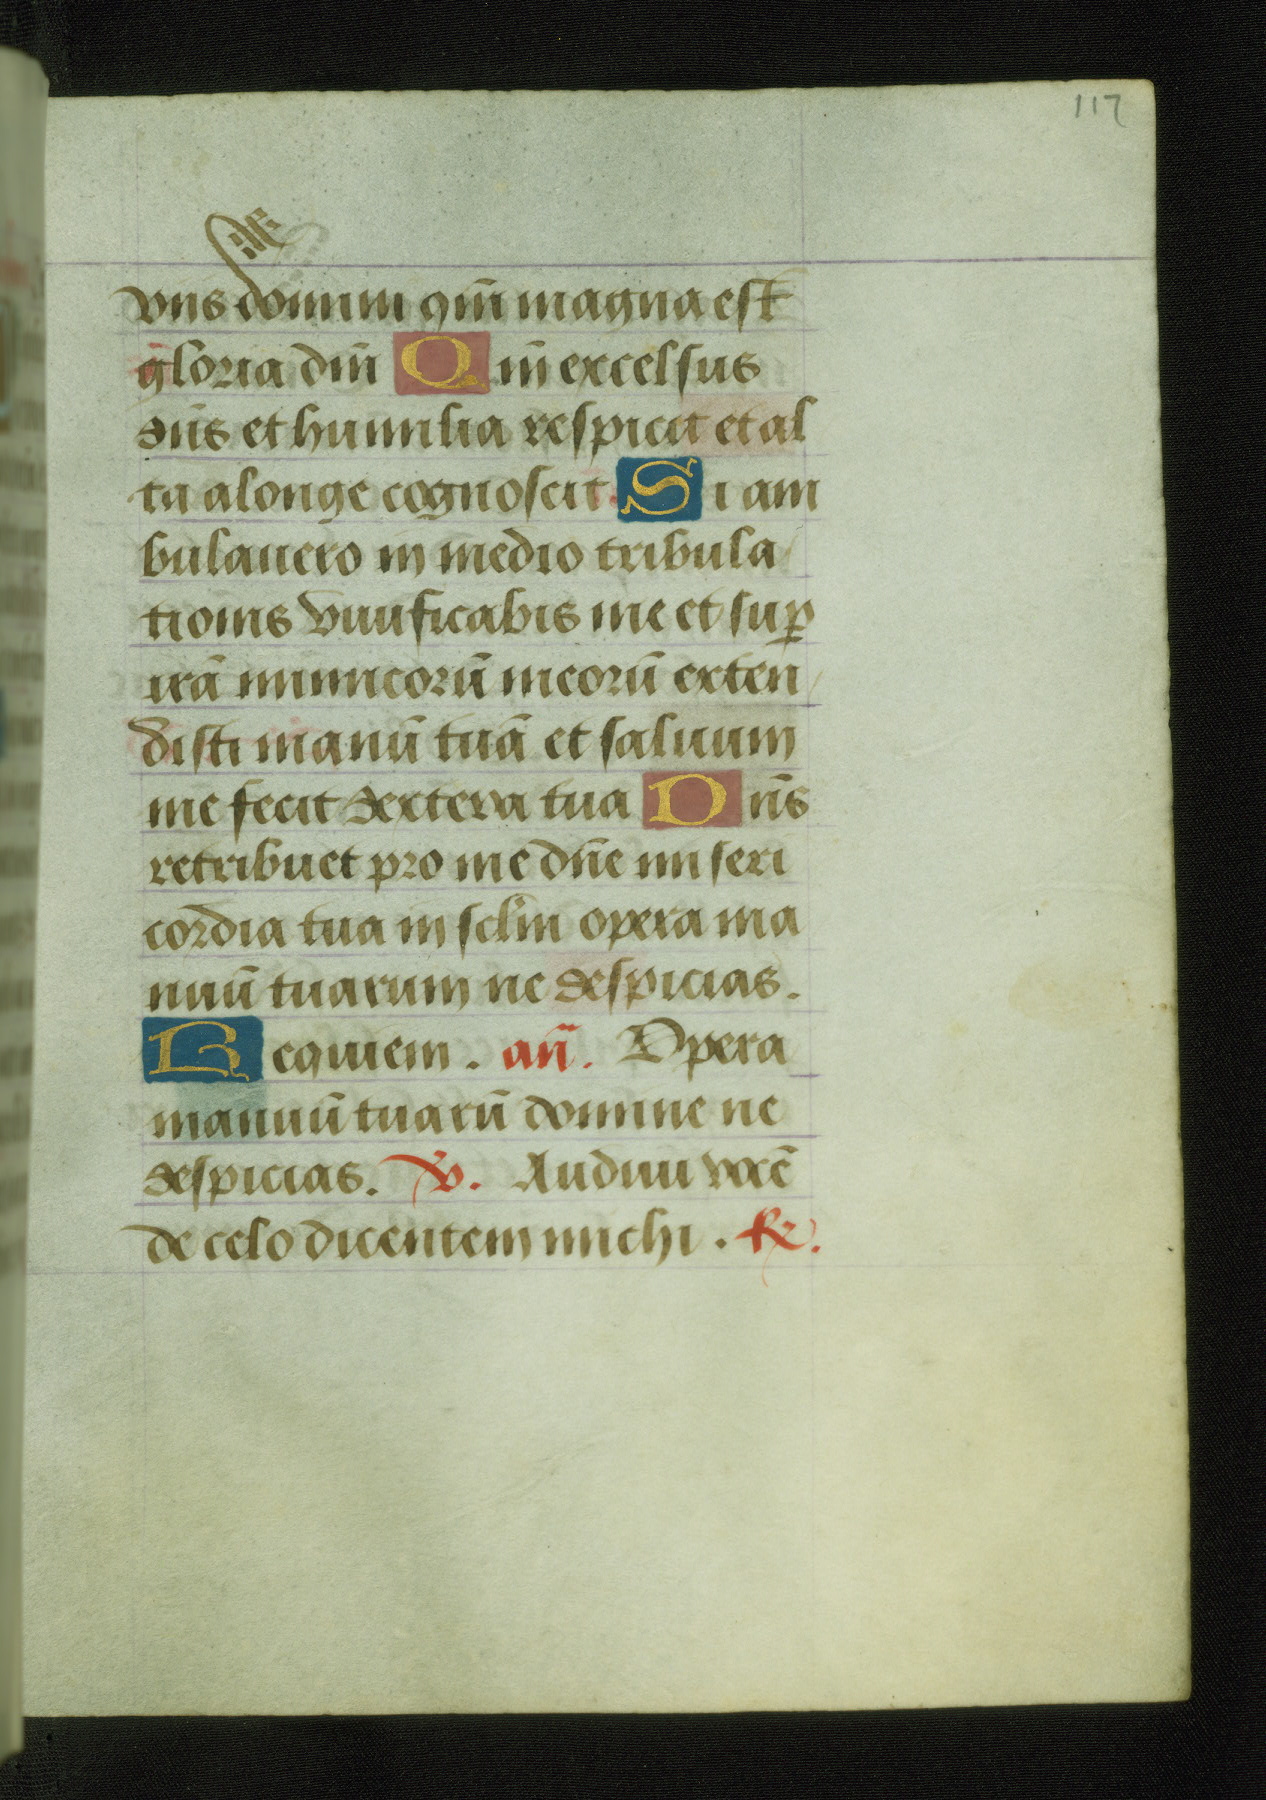 117
vns domini qm̄ magna est
gloria dm̄i Q m̄ excelsus
dn̄s et humilia respicit et al
ta a longe cognoscit S i am
bulauero in medio tribula
tionis viuificabis me et sup̱
irā inimicorū meorū exten
disti manū tuā et saluum
me fecit dextera tua D n̄s
retribuet pro me dn̄e miseri
cordia tua in sclm̄ opera ma
nuū tuarum ne despicias.
R equiem. an̄. Opera
manuū tuarū domine ne
despicias. v. Audiui vocē
de celo dicentem michi. ℟.